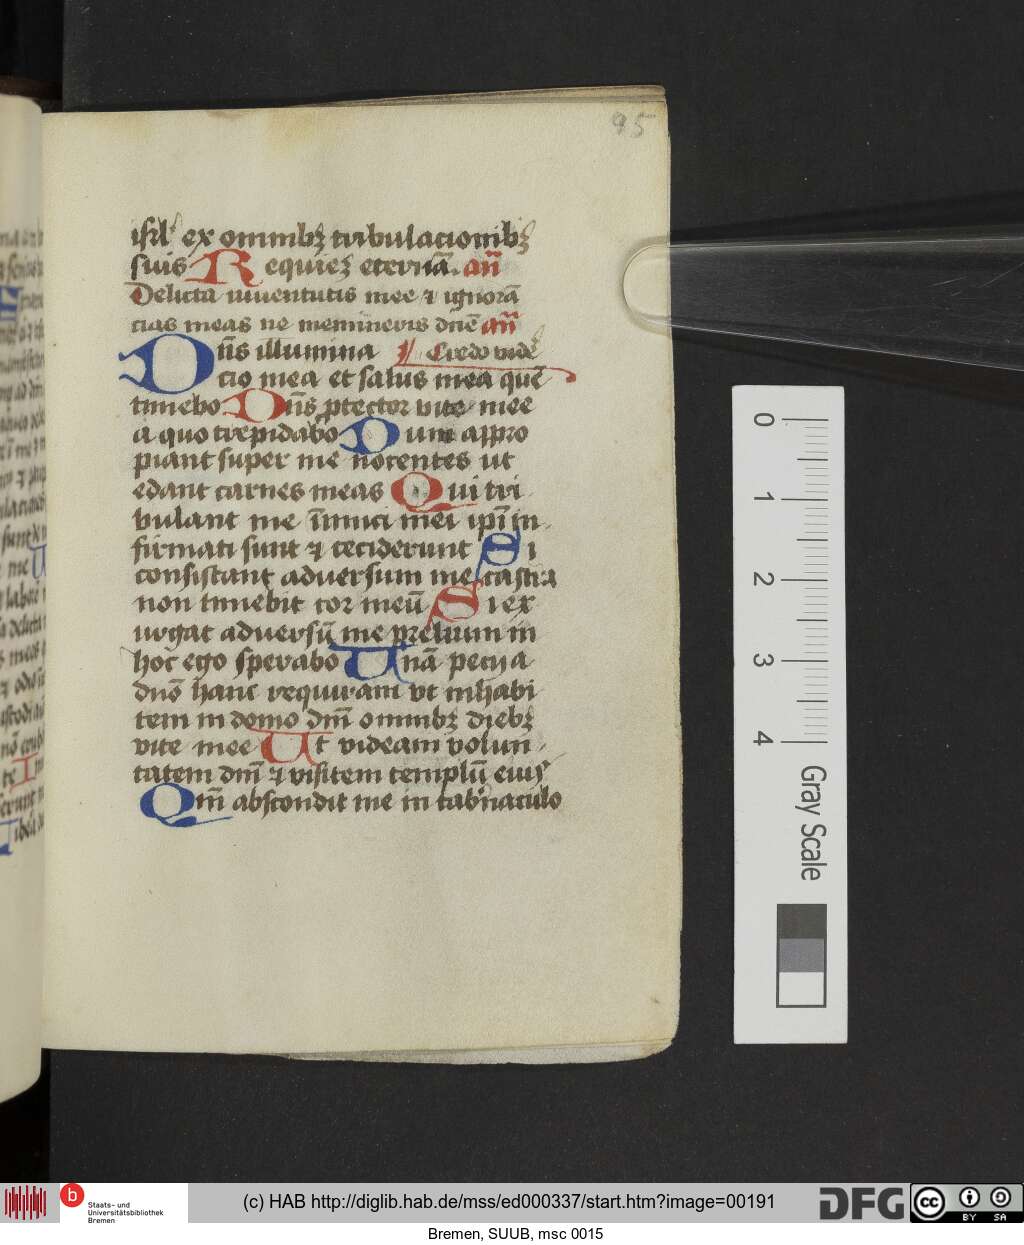 95
isrl' ex omnibꝫ tribulacionibꝫ
suis Requieꝫ eternā. an̄
Delicta iuventutis mee ⁊ ignorā
cias meas ne memineris dn̄e an̄
Dn̄s illumina Credo vide
cio mea et salus mea quē
timebo Dn̄s ꝓtector vite mee
a quo trepidabo Dum appro
piant super me nocentes ut
edant carnes meas Qui tri
bulant me īimici mei ip̄i in
firmati sunt ⁊ ceciderunt Si
consistant adversum me castra
non timebit cor meū Si ex
urgat adversū me prelium in
hoc ego sperabo Unā pecij a
dn̄o hanc requiram vt inhabi
tem in domo dn̄i omnibꝫ diebꝫ
vite mee Ut videam volun
tatem dn̄i ⁊ visitem templū eius
Qm̄ abscondit me in tab'naculo
0
1
2
3
4
Gray Scale
b Staats- und
Universitätsbibliothek
Bremen
(c) HAB http://diglib.hab.de/mss/ed000337/start.htm?image=00191
DFG
cc BY SA
Bremen, SUUB, msc 0015